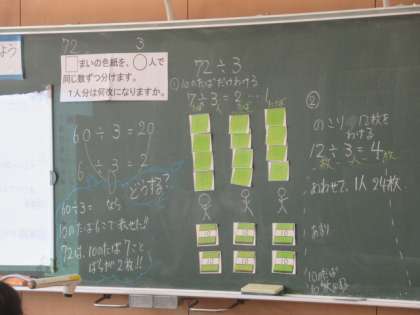 よう
72 3
□まいの色紙を、○人で
同じ数ずつ分けます。
1人分は何枚になりますか。
60÷3=20
6÷3=2
どうする?
60÷3=なら
10のたば6こで表せた!!
72は、10のたば7こと
ばらが2枚!!
72÷3
①10のたばだけわける
7÷3=2…1
たば 人 たば たば
10 10 10
10 10 10
②
のこり 12枚を
わける
12÷3=4
枚 人 枚
あわせて、1人 24枚
あまり
10のたば